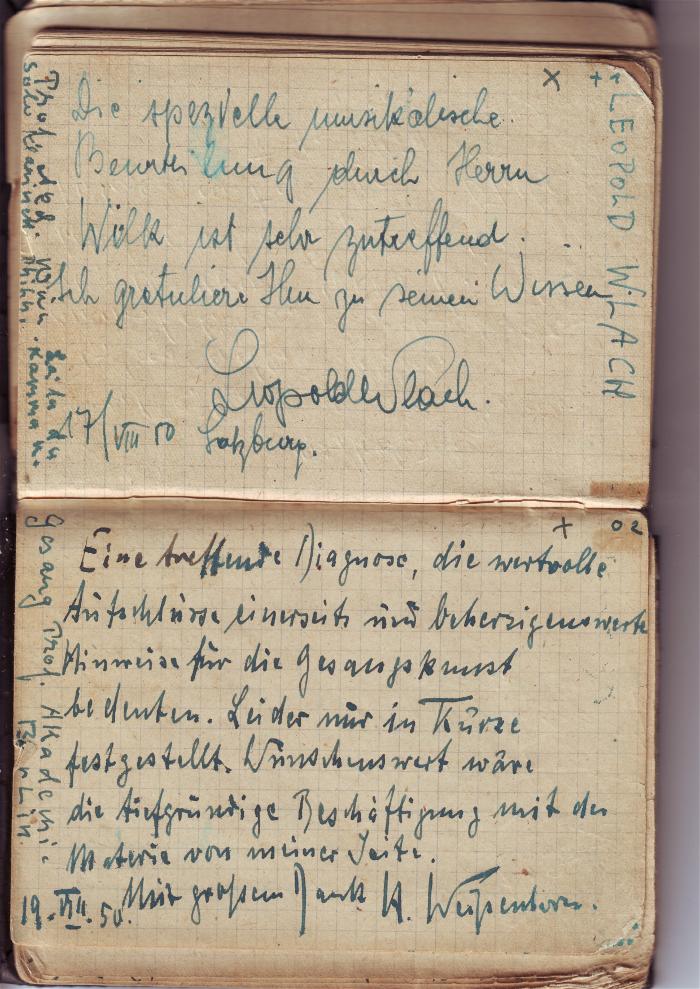 Die spezielle musikalische
Beurteilung durch Herrn
Wilk ist sehr zutreffend.
Ich gratuliere Ihm zu seinen Wissen
Leopold Wlach.
17/VIII 50 Salzburg.
LEOPOLD WLACH
Prof. der Wien
02
Eine treffende Diagnose, die wertvolle
Aufschlüsse einerseits und beherzigenswerte
Hinweise für die Gesangskunst
bedeuten. Leider nur in Kürze
festgestellt. Wünschenswert wäre
die tiefgründige Beschäftigung mit der
Materie von meiner Seite.
Mit großem Dank H. Weißenborn.
19.VIII.50.
Gesang Prof. Akademie
Berlin